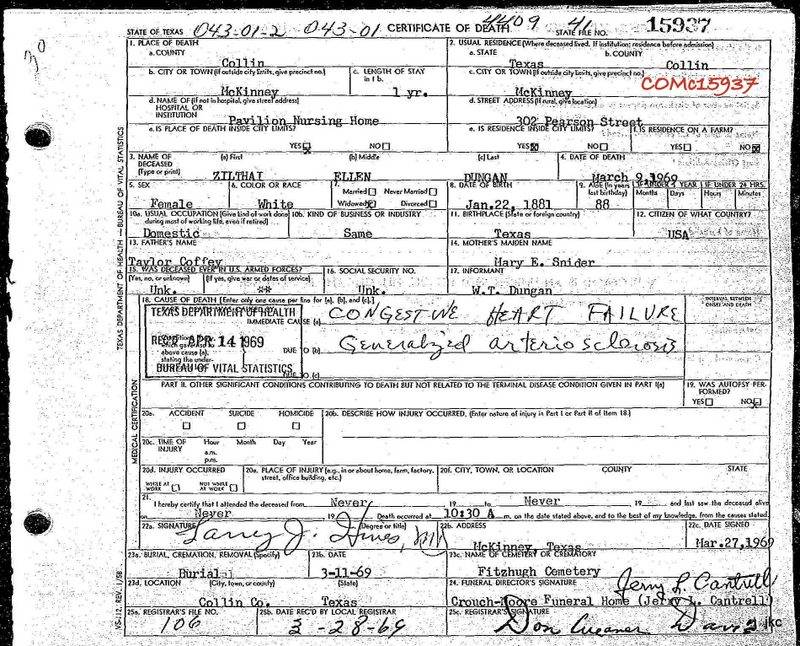 4409 41
STATE OF TEXAS 043-01-2 043-01 CERTIFICATE OF DEATH STATE FILE NO. 15937
1. PLACE OF DEATH 2. USUAL RESIDENCE (Where deceased lived. If institution: residence before admission)
a. COUNTY a. STATE b. COUNTY
Collin Texas Collin
b. CITY OR TOWN (If outside city limits, give precinct no.) c. LENGTH OF STAY in 1b. c. CITY OR TOWN (If outside city limits, give precinct no.)
McKinney 1 yr. McKinney COMc15937
d. NAME OF (If not in hospital, give street address) HOSPITAL OR INSTITUTION d. STREET ADDRESS (If rural, give location)
Pavilion Nursing Home 302 Pearson Street
e. IS PLACE OF DEATH INSIDE CITY LIMITS? e. IS RESIDENCE INSIDE CITY LIMITS? f. IS RESIDENCE ON A FARM?
YES NO YES NO YES NO
3. NAME OF DECEASED (Type or print) (a) First (b) Middle (c) Last 4. DATE OF DEATH
ZILTHAI ELLEN DUNGAN March 9, 1969
5. SEX 6. COLOR OR RACE 7. Married Never Married 8. DATE OF BIRTH 9. AGE (In years last birthday) IF UNDER 1 YEAR IF UNDER 24 HRS.
Months Days Hours Minutes
Female White Widowed Divorced Jan.22, 1881 88
10a. USUAL OCCUPATION (Give kind of work done during most of working life, even if retired) 10b. KIND OF BUSINESS OR INDUSTRY 11. BIRTHPLACE (State or foreign country) 12. CITIZEN OF WHAT COUNTRY?
Domestic Same Texas USA
13. FATHER'S NAME 14. MOTHER'S MAIDEN NAME
Taylor Coffey Mary E. Snider
15. WAS DECEASED EVER IN U.S. ARMED FORCES? 16. SOCIAL SECURITY NO. 17. INFORMANT
(Yes, no, or unknown) (If yes, give war or dates of service)
Unk. ** Unk. W.T. Dungan
18. CAUSE OF DEATH [Enter only one cause per line for (a), (b), and (c).] INTERVAL BETWEEN ONSET AND DEATH
TEXAS DEPARTMENT OF HEALTH
IMMEDIATE CAUSE (a) CONGESTIVE HEART FAILURE
REC'D APR 14 1969
above cause (a), stating the under- DUE TO (b) Generalized arteriosclerosis
BUREAU OF VITAL STATISTICS
DUE TO (c)
PART II. OTHER SIGNIFICANT CONDITIONS CONTRIBUTING TO DEATH BUT NOT RELATED TO THE TERMINAL DISEASE CONDITION GIVEN IN PART I(a) 19. WAS AUTOPSY PERFORMED?
YES NO
20a. ACCIDENT SUICIDE HOMICIDE 20b. DESCRIBE HOW INJURY OCCURRED. (Enter nature of injury in Part I or Part II of item 18.)
20c. TIME OF INJURY Hour Month Day Year
a.m.
p.m.
20d. INJURY OCCURRED 20e. PLACE OF INJURY (e.g., in or about home, farm, factory, street, office building, etc.) 20f. CITY, TOWN, OR LOCATION COUNTY STATE
WHILE AT WORK NOT WHILE AT WORK
21. I hereby certify that I attended the deceased from Never 19 to Never 19 and last saw the deceased alive
on Never 19 Death occurred at 10:30 A m. on the date stated above, and to the best of my knowledge, from the causes stated.
22a. SIGNATURE (Degree or title) 22b. ADDRESS 22c. DATE SIGNED
Larry J. Hines, MD McKinney, Texas Mar.27,1969
23a. BURIAL, CREMATION, REMOVAL (Specify) 23b. DATE 23c. NAME OF CEMETERY OR CREMATORY
Burial 3-11-69 Fitzhugh Cemetery
23d. LOCATION (City, town, or county) (State) 24. FUNERAL DIRECTOR'S SIGNATURE Jerry L. Cantrell
Collin Co. Texas Crouch-Moore Funeral Home (Jerry L. Cantrell)
25a. REGISTRAR'S FILE NO. 25b. DATE REC'D BY LOCAL REGISTRAR 25c. REGISTRAR'S SIGNATURE
106 3-28-69 Don jkc
TEXAS DEPARTMENT OF HEALTH — BUREAU OF VITAL STATISTICS
MEDICAL CERTIFICATION
VS-112, REV. 1/58